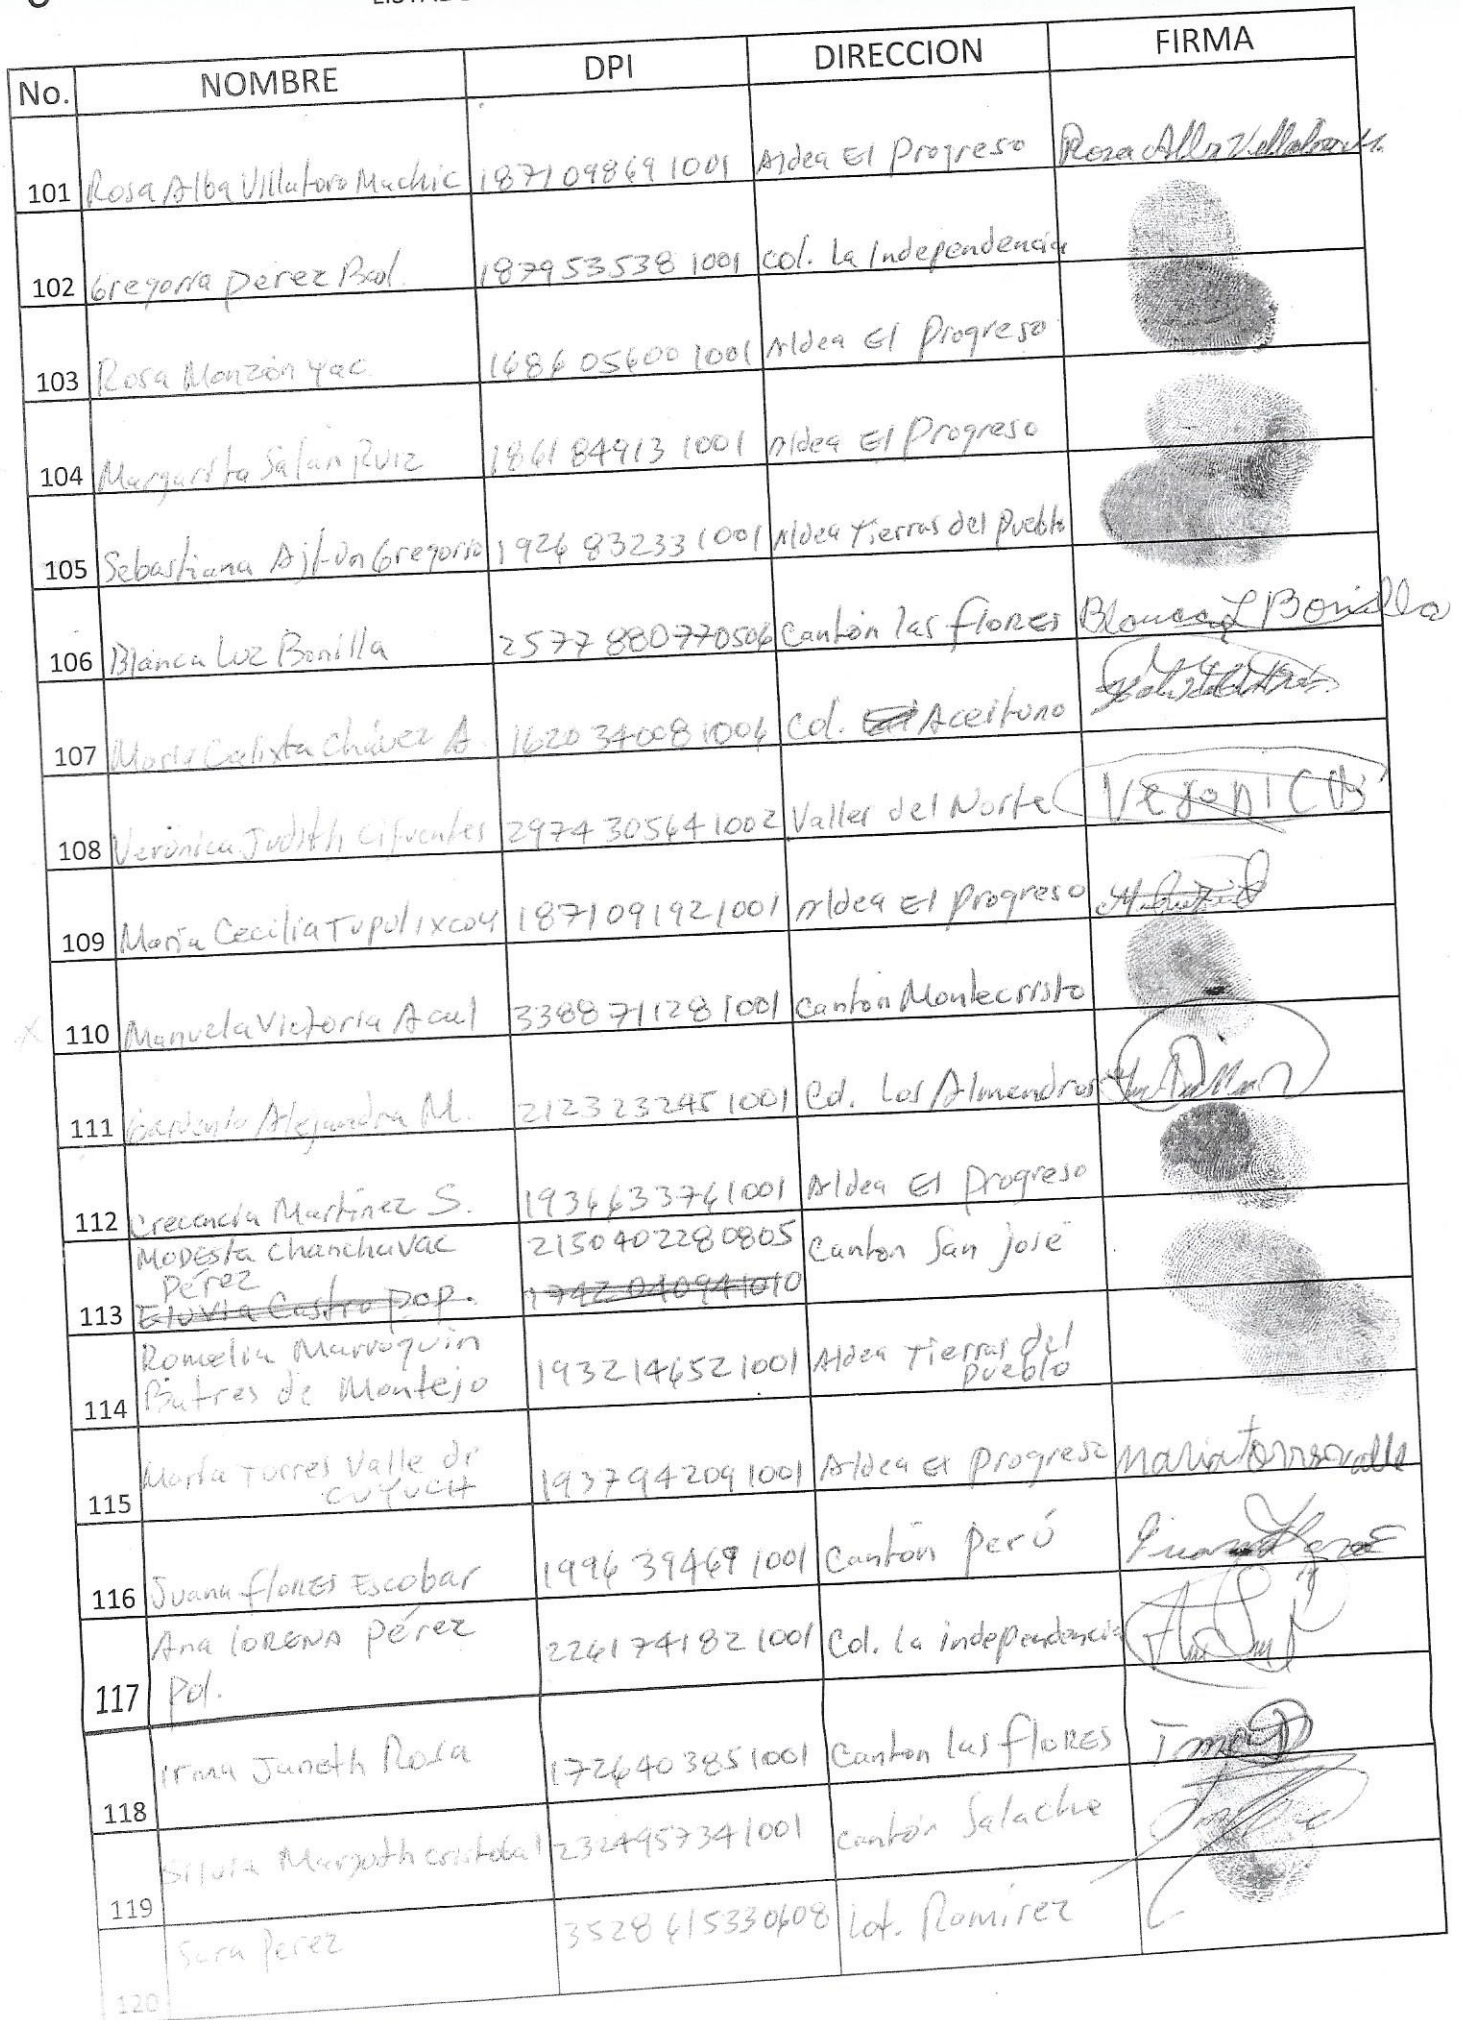 No. NOMBRE DPI DIRECCION FIRMA
101 Rosa Alba Villatoro Machic 187109869 1001 Aldea El Progreso Rosa Alba
102 Gregoria Pérez Bol 187953538 1001 Col. La Independencia
103 Rosa Monzón Yac 1686 05600 1001 Aldea El Progreso
104 Margarita Salan Ruiz 1861 84913 1001 Aldea El Progreso
105 Sebastiana Ajtun Gregorio 1926 83233 1001 Aldea Tierras del Pueblo
106 Blanca Luz Bonilla 2577 88077 0506 Cantón las flores Blanca L Bonilla
107 María Calixta Chávez A. 1620 34008 1004 Col. Aceituno
108 Verónica Judith Cifuentes 2974 30564 1002 Valles del Norte Veronica
109 María Cecilia Tupul Ixcoy 1871 09192 1001 Aldea El Progreso
110 Manuela Victoria Acul 3388 71128 1001 Cantón Montecristo
111 Alejandra M. 2123 23245 1001 Col. Los Almendros
112 Crecencia Martínez S. 1936633761001 Aldea El Progreso
Modesta Chanchavac 2150402280805 Canton San José
Pérez
113 Eluvia Castro Pop. 1742040941010
Romelia Marroquin
114 Butres de Montejo 1932146521001 Aldea Tierras del
Pueblo
María Torres Valle de
115 CUYUCH 1937942091001 Aldea El Progreso maria torres valle
116 Juana flores Escobar 1996 39469 1001 Cantón Perú
Ana LORENA Pérez
117 Pol. 2261741821001 Col. la independencia
118 Irma Janeth Rosa 1726403851001 Canton las flores Irma
119 Silvia Margoth cristobal 2324957341001 cantón Salache
120 Sara Perez 3528 615330608 Lot. Ramírez